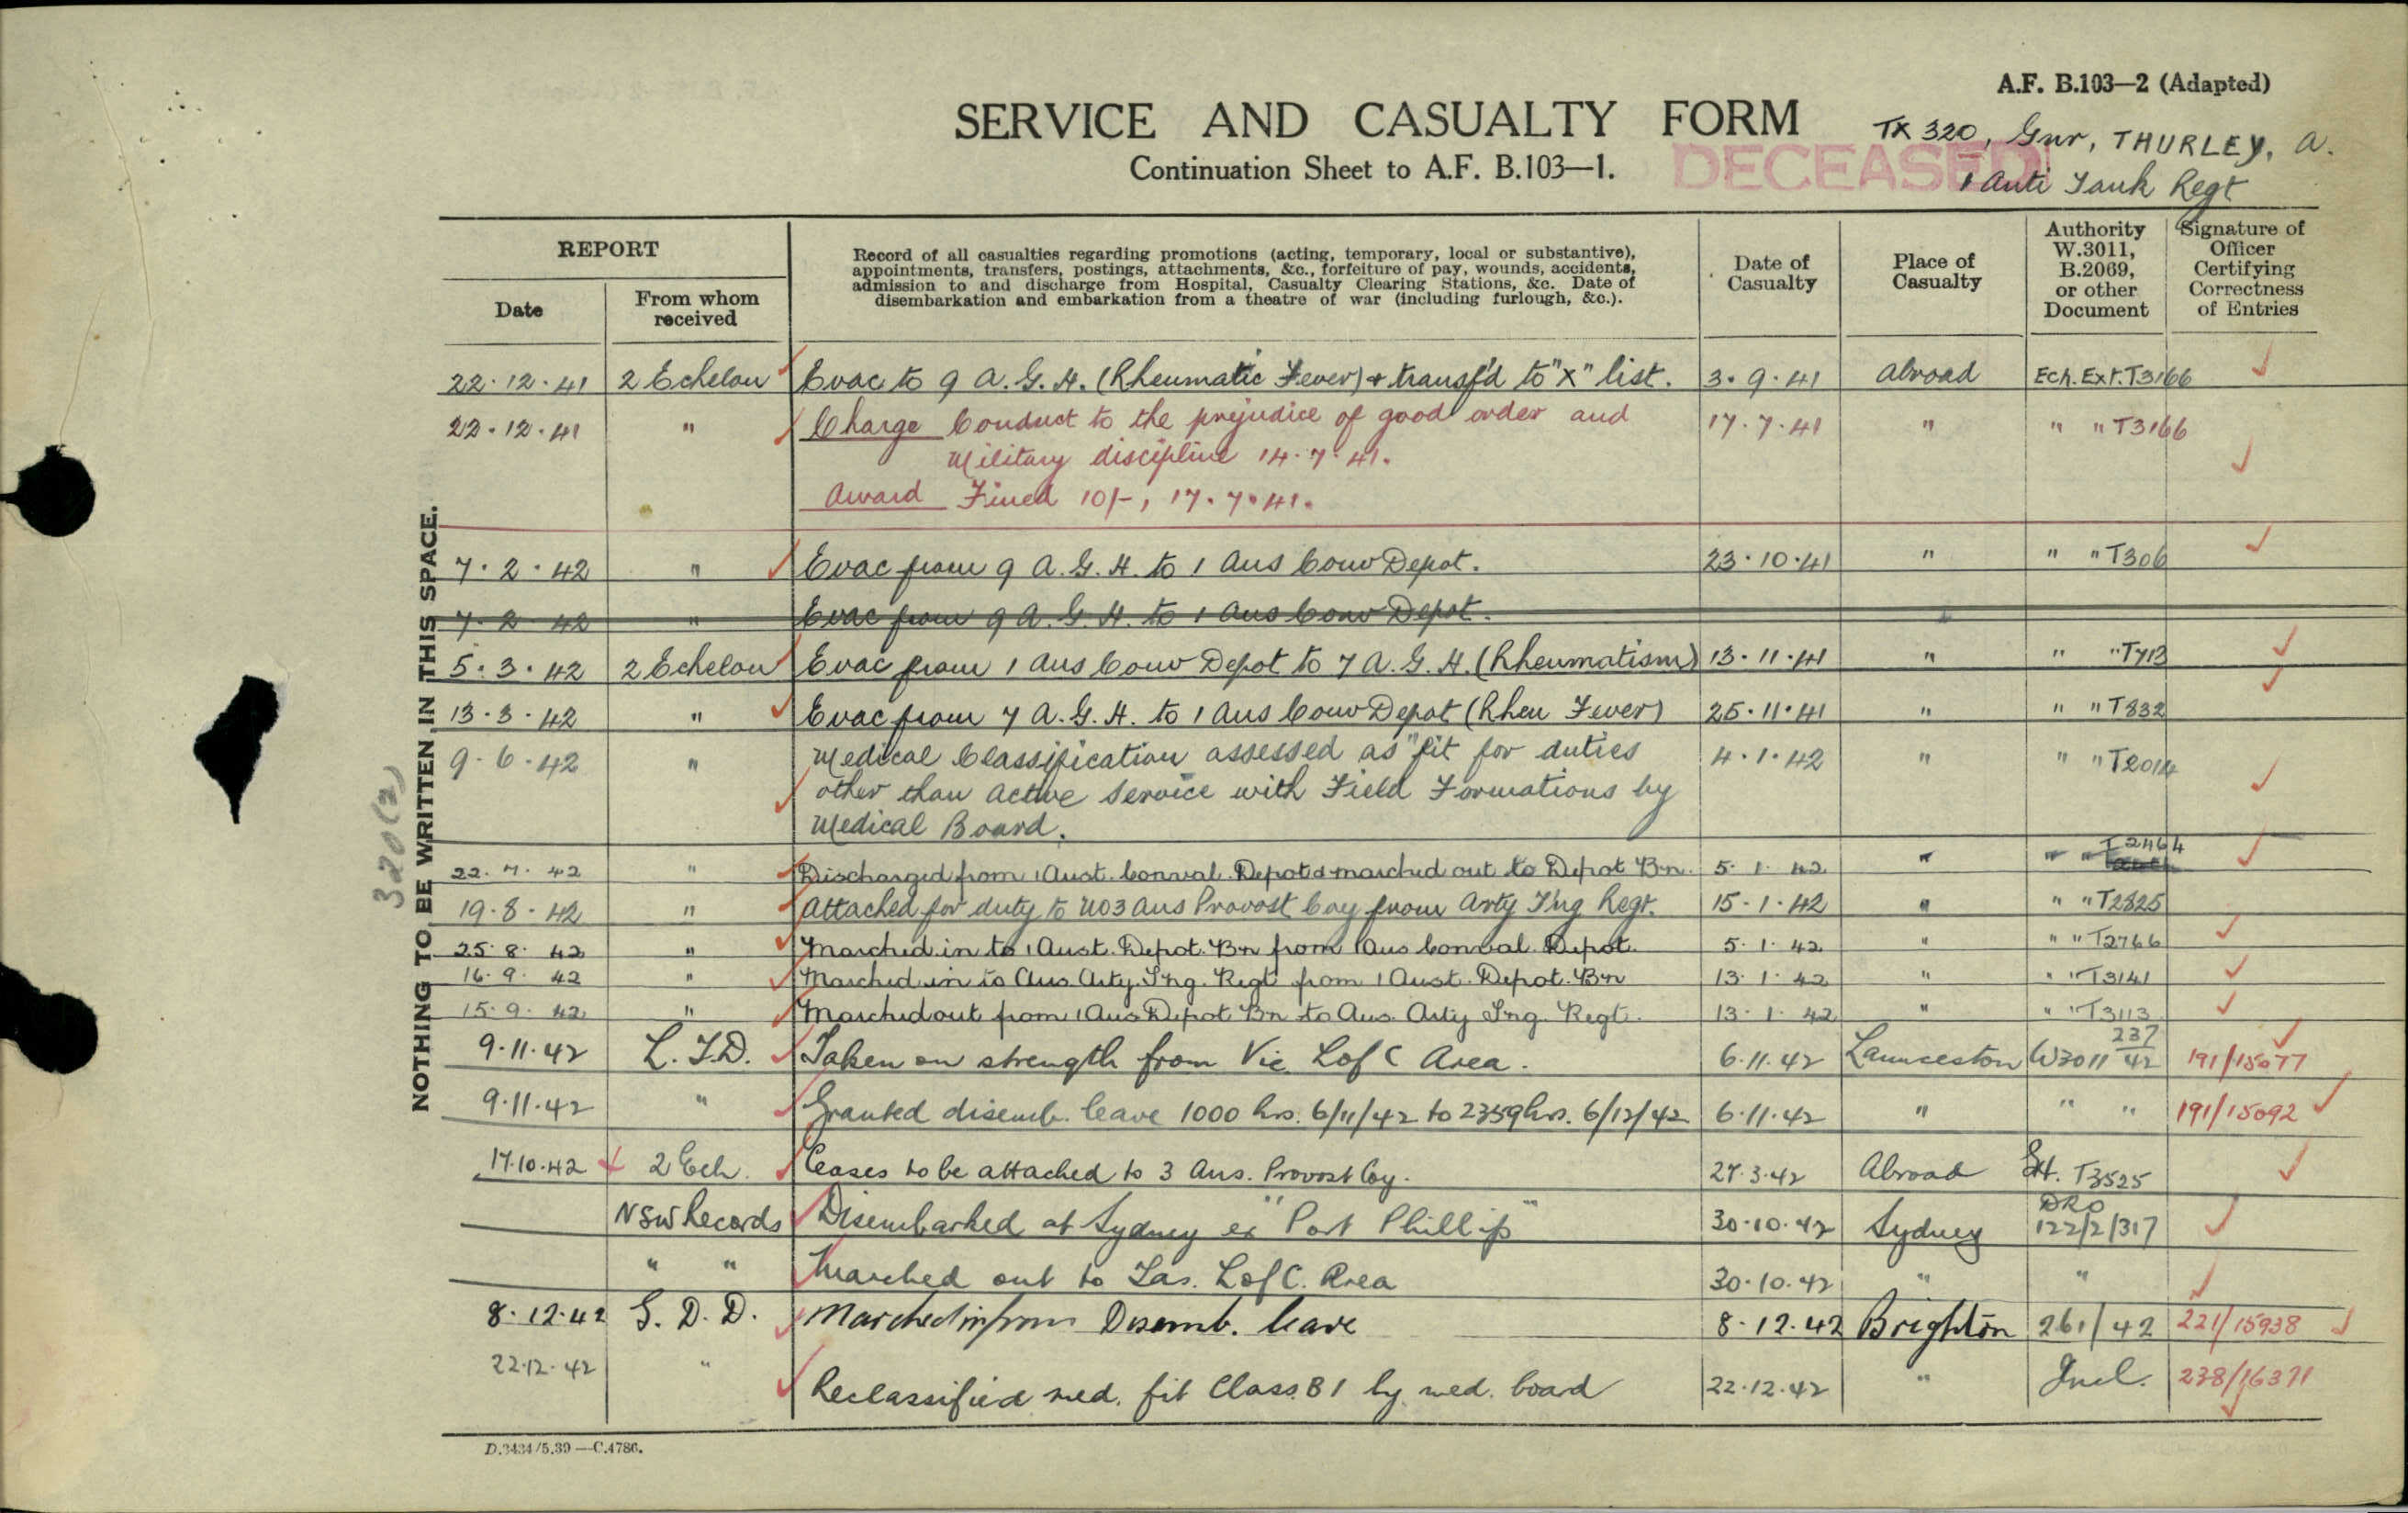 A.F. B.103—2 (Adapted)
SERVICE AND CASUALTY FORM
TX 320, Gnr, THURLEY, A.
Continuation Sheet to A.F. B.103—1.
DECEASED
1 Anti Tank Regt
REPORT
Date
From whom received
Record of all casualties regarding promotions (acting, temporary, local or substantive),
appointments, transfers, postings, attachments, &c., forfeiture of pay, wounds, accidents,
admission to and discharge from Hospital, Casualty Clearing Stations, &c. Date of
disembarkation and embarkation from a theatre of war (including furlough, &c.).
Date of Casualty
Place of Casualty
Authority W.3011, B.2069, or other Document
Signature of Officer Certifying Correctness of Entries
22.12.41 2 Echelon Evac to 9 A.G.H. (Rheumatic Fever) & transf'd to "X" list. 3.9.41 Abroad Ech. Ext. T3166
22.12.41 " Charge Conduct to the prejudice of good order and 17.7.41 " " " T3166
Military discipline 14.7.41.
Award Fined 10/-, 17.7.41.
7.2.42 " Evac from 9 A.G.H. to 1 Aus Conv Depot. 23.10.41 " " " T306
7.2.42 " Evac from 9 A.G.H. to 1 Aus Conv Depot.
5.3.42 2 Echelon Evac from 1 Aus Conv Depot to 7 A.G.H. (Rheumatism) 13.11.41 " " " T713
13.3.42 " Evac from 7 A.G.H. to 1 Aus Conv Depot (Rheu Fever) 25.11.41 " " " T832
9.6.42 " Medical Classification assessed as "fit for duties 4.1.42 " " " T2014
other than active service with Field Formations by
Medical Board.
22.7.42 " Discharged from 1 Aust. Conval. Depot & marched out to Depot Bn. 5.1.42 " " " T2464
19.8.42 " Attached for duty to No 3 Aus Provost Coy from Arty T'ng Regt. 15.1.42 " " " T2825
25.8.42 " Marched in to 1 Aust. Depot Bn from 1 Aus Conval. Depot. 5.1.42 " " " T2766
16.9.42 " Marched in to Aus. Arty. Tng. Regt from 1 Aust. Depot. Bn 13.1.42 " " " T3141
15.9.42 " Marched out from 1 Aus Depot Bn to Aus. Arty Tng. Regt. 13.1.42 " " " T3113
9.11.42 L.T.D. Taken on strength from Vic L of C Area. 6.11.42 Launceston W3011 237/42 191/15077
9.11.42 " Granted disemb. leave 1000 hrs. 6/11/42 to 2359 hrs. 6/12/42 6.11.42 " " " 191/15092
17.10.42 2 Ech. Ceases to be attached to 3 Aus. Provost Coy. 27.3.42 Abroad Ext. T3525
NSW Records Disembarked at Sydney ex "Port Phillip" 30.10.42 Sydney DRO 122/2/317
" " Marched out to Tas. L of C. Area 30.10.42 " "
8.12.42 G.D.D. Marched in from Disemb. leave 8.12.42 Brighton 261/42 221/15938
22.12.42 " Reclassified med. fit Class B1 by med. board 22.12.42 " Incl. 238/16371
NOTHING TO BE WRITTEN IN THIS SPACE.
320(2)
D.3434/5.39—C.4786.